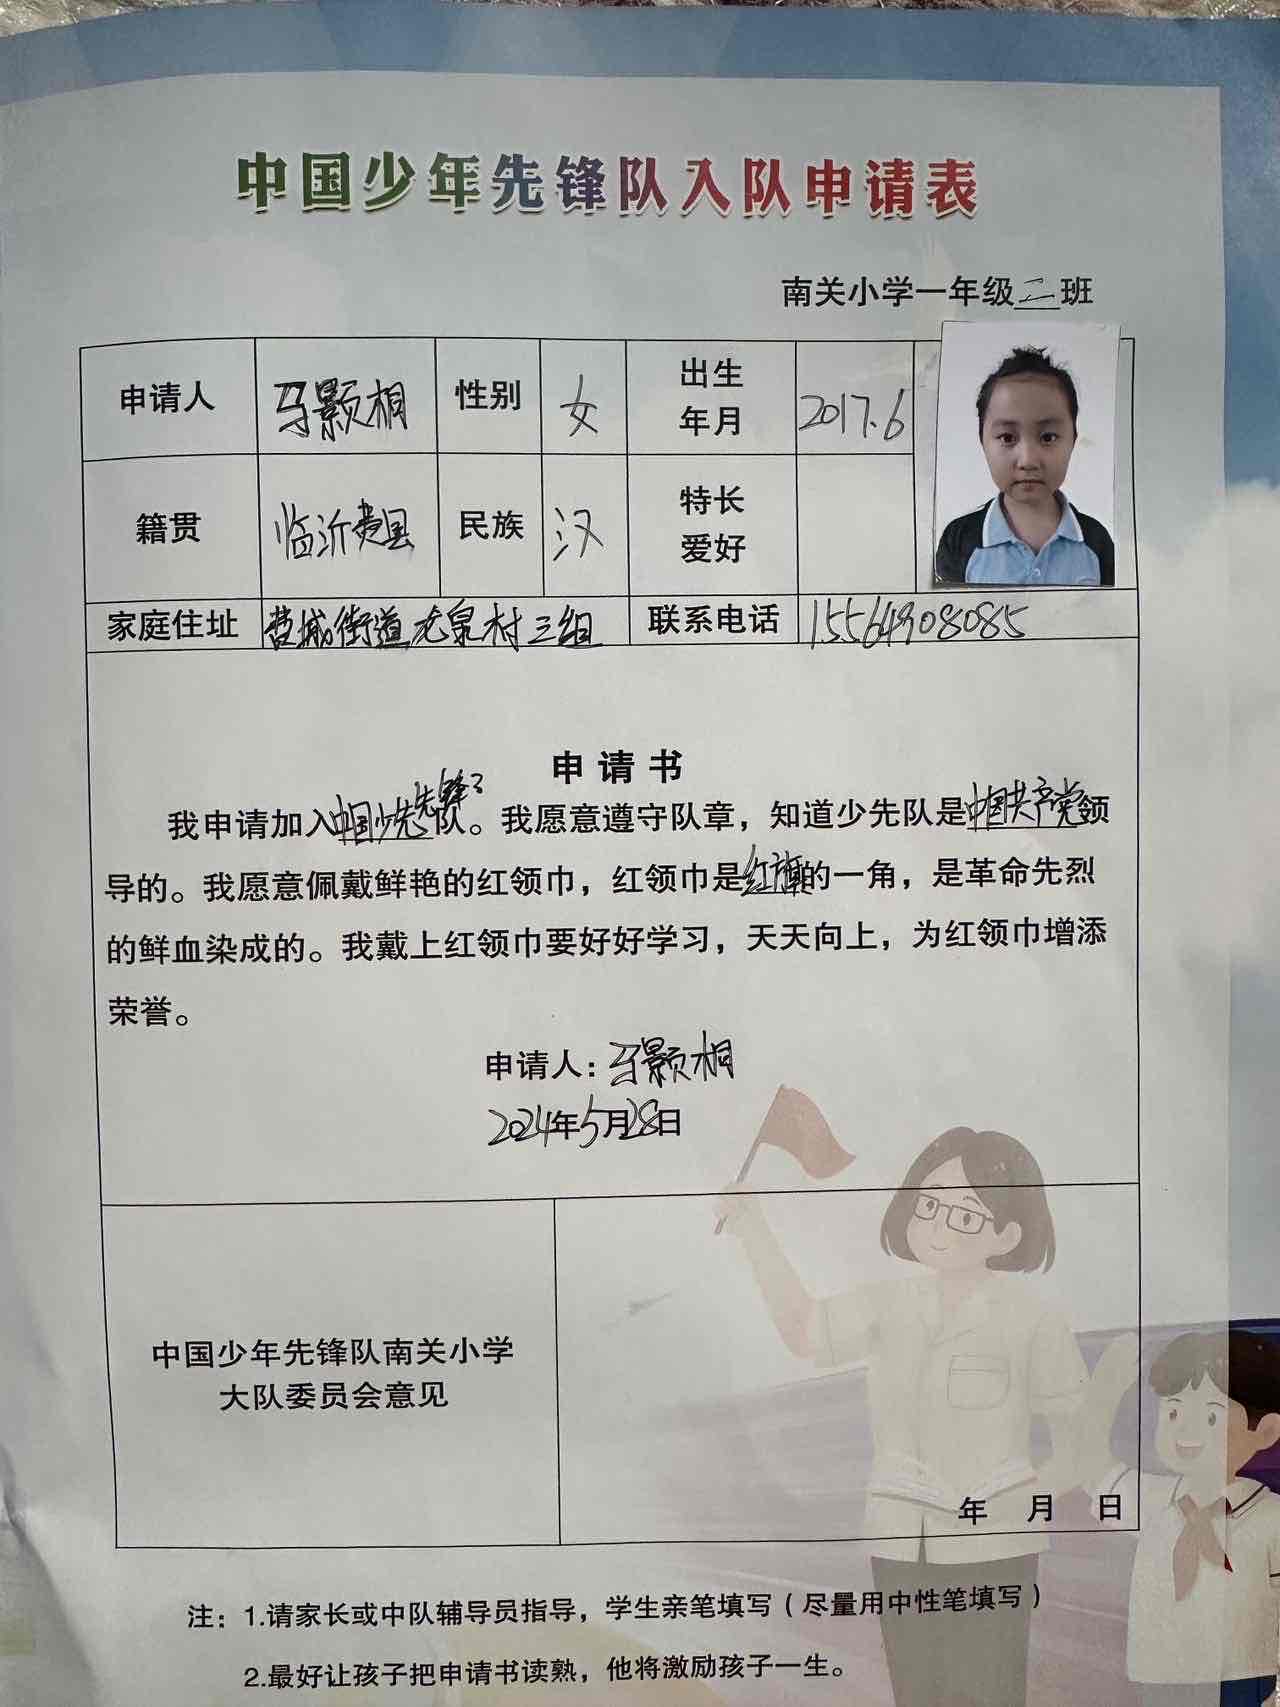 中国少年先锋队入队申请表
南关小学一年级二班
申请人 马颢桐 性别 女 出生年月 2017.6
籍贯 临沂费县 民族 汉 特长爱好
家庭住址 费城街道龙泉村三组 联系电话 15564908085
申请书
我申请加入中国少先先锋队。我愿意遵守队章，知道少先队是中国共产党领
导的。我愿意佩戴鲜艳的红领巾，红领巾是红旗的一角，是革命先烈
的鲜血染成的。我戴上红领巾要好好学习，天天向上，为红领巾增添
荣誉。
申请人：马颢桐
2024年5月28日
中国少年先锋队南关小学
大队委员会意见
年 月 日
注：1.请家长或中队辅导员指导，学生亲笔填写（尽量用中性笔填写）
2.最好让孩子把申请书读熟，他将激励孩子一生。